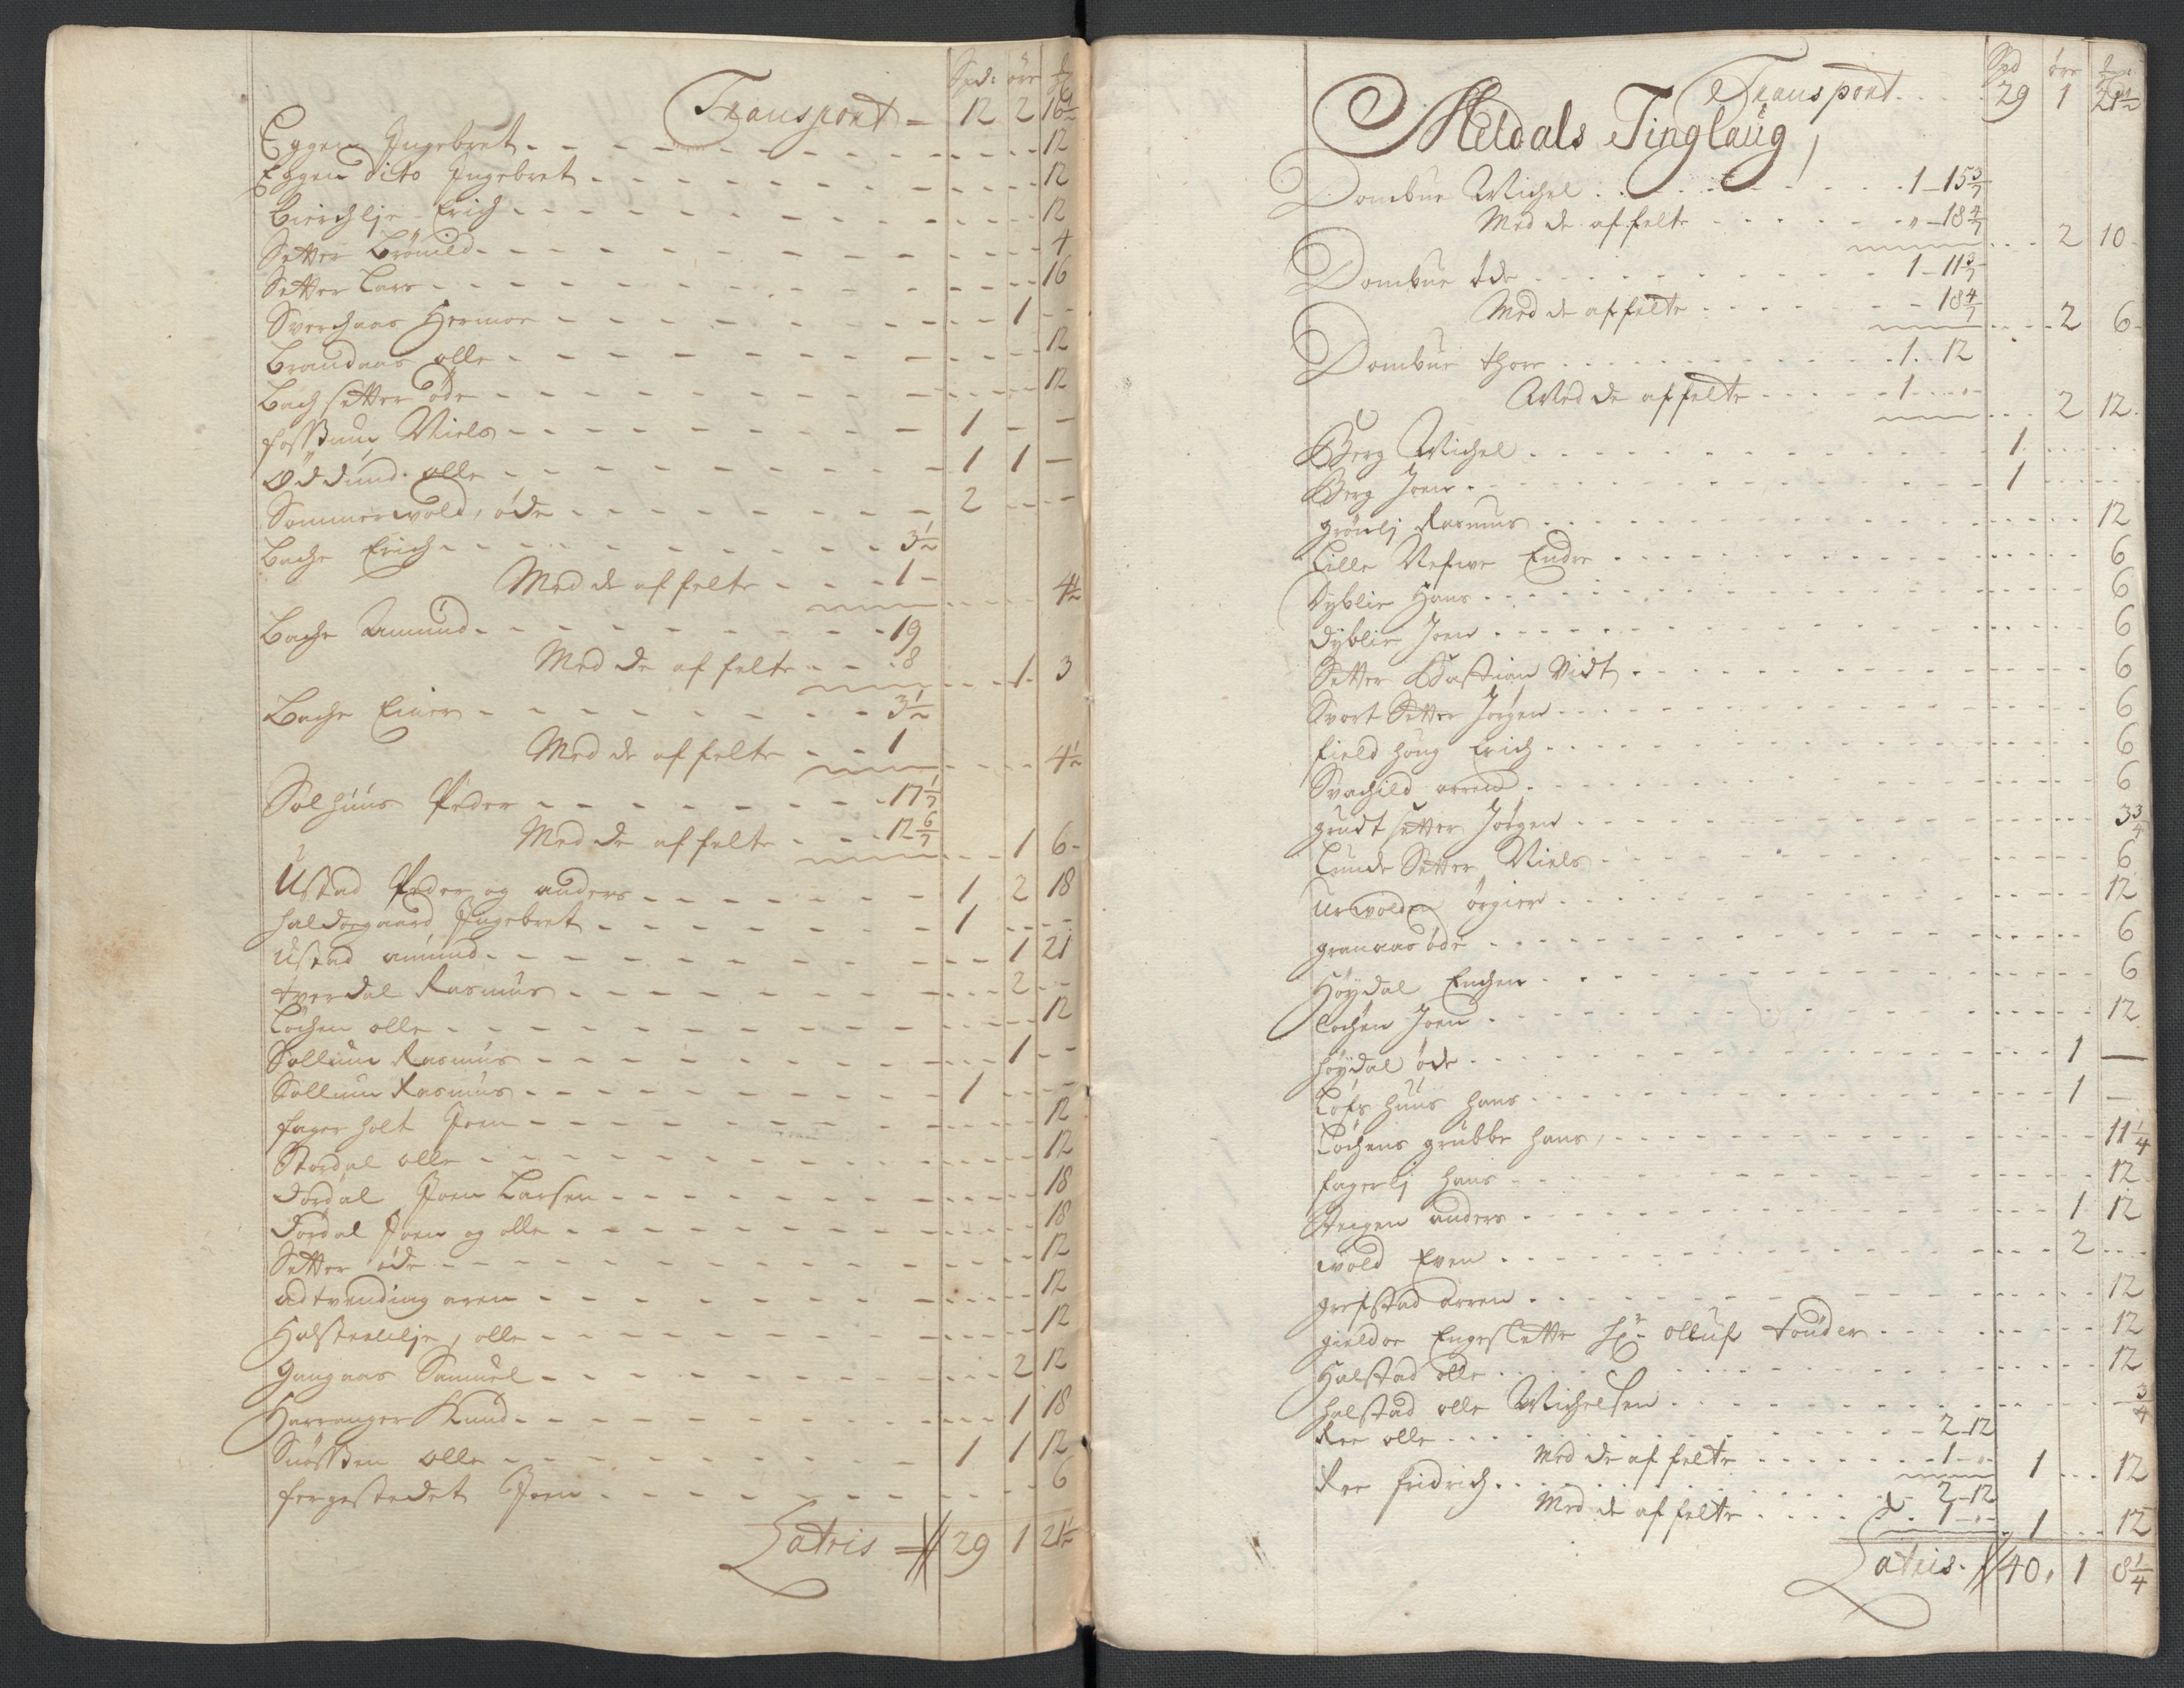 Spd: öre
Transport – 12 2 16
Eggen Ingebret 12
Eggen dito Ingebret 12
Bierchlje Erich 12
Setter Brönild 4
Setter Lars 16
Sverchaas Hermoe 1 –
Brandaas olle 12
Bach setter öde 12
fossum Niels 1 – –
Öddund olle 1 1 –
Sommerwold, öde 2 – –
Bache Erich 3½
Med de affelte 1 –
4½
Bache Amund 19
Med de affelte 8
1 3
Bache Einer 3½
Med de affelte 1
4½
Solhuus Peder 17 1/7
Med de affelte 12 6/7
1 6
Ustad Peder og anders 1 2 18
haldorgaard Ingebret 1 – –
Ustad amund 1 21
tverdal Rasmus 2 –
Löchen olle 12
Sollum Rasmus 1 –
Sollum Rasmus 1 – –
fagerholt Joen 12
Stordal olle 12
dordal Joen Larsen 18
dordal Joen og olle 18
Setter öde 12
adtvending aren 12
Halsteenlje, olle 12
Gangaas Samuel 2 12
Harranger Knud 1 18
Snossen olle 1 1 12
fergestedet Joen 6
Latris 29 1 21½
Spd öre
Transport 29 1 21½
Meldals Tinglaug
Dombue Michel 1 – 15 3/7
Med de affelte – 18 4/7
2 10
Dombue öde 1 – 11 3/7
Med de affelte – 18 4/7
2 6
Dombue thore 1 – 12
Med de affelte 1 – –
2 12
Berg Michel 1
Berg Joen 1
grönlj Rasmus 12
Lille Refwe Endre 6
Dyblie Hans 6
dyblie Joen 6
Setter Bastian Vidt 6
Svort Setter Jörgen 6
field houg Erich 6
Svachild arend 6
grudt setter Jörgen 3 3/4
Lunde Setter Niels 6
Urwolden örgier 12
granaas öde 6
Höydal Enchen 6
Lochen Joen 12
höydal öde 1 –
Löfs huus hans 1 –
Löchens grubbe hans 11 1/4
fagerlj hans 12
Steigen anders 1 12
wold Even 2
grefstad arren 12
gieldoe Engeslette hr. olluf tonder 12
Halstad olle 12
halstad olle Michelsen 3/4
Ree olle 2 – 12
Med de affelte 1 – –
1 12
Ree fridrich 2 – 12
Med de affelte 1 – –
1 12
Latris 40 1 8 1/4